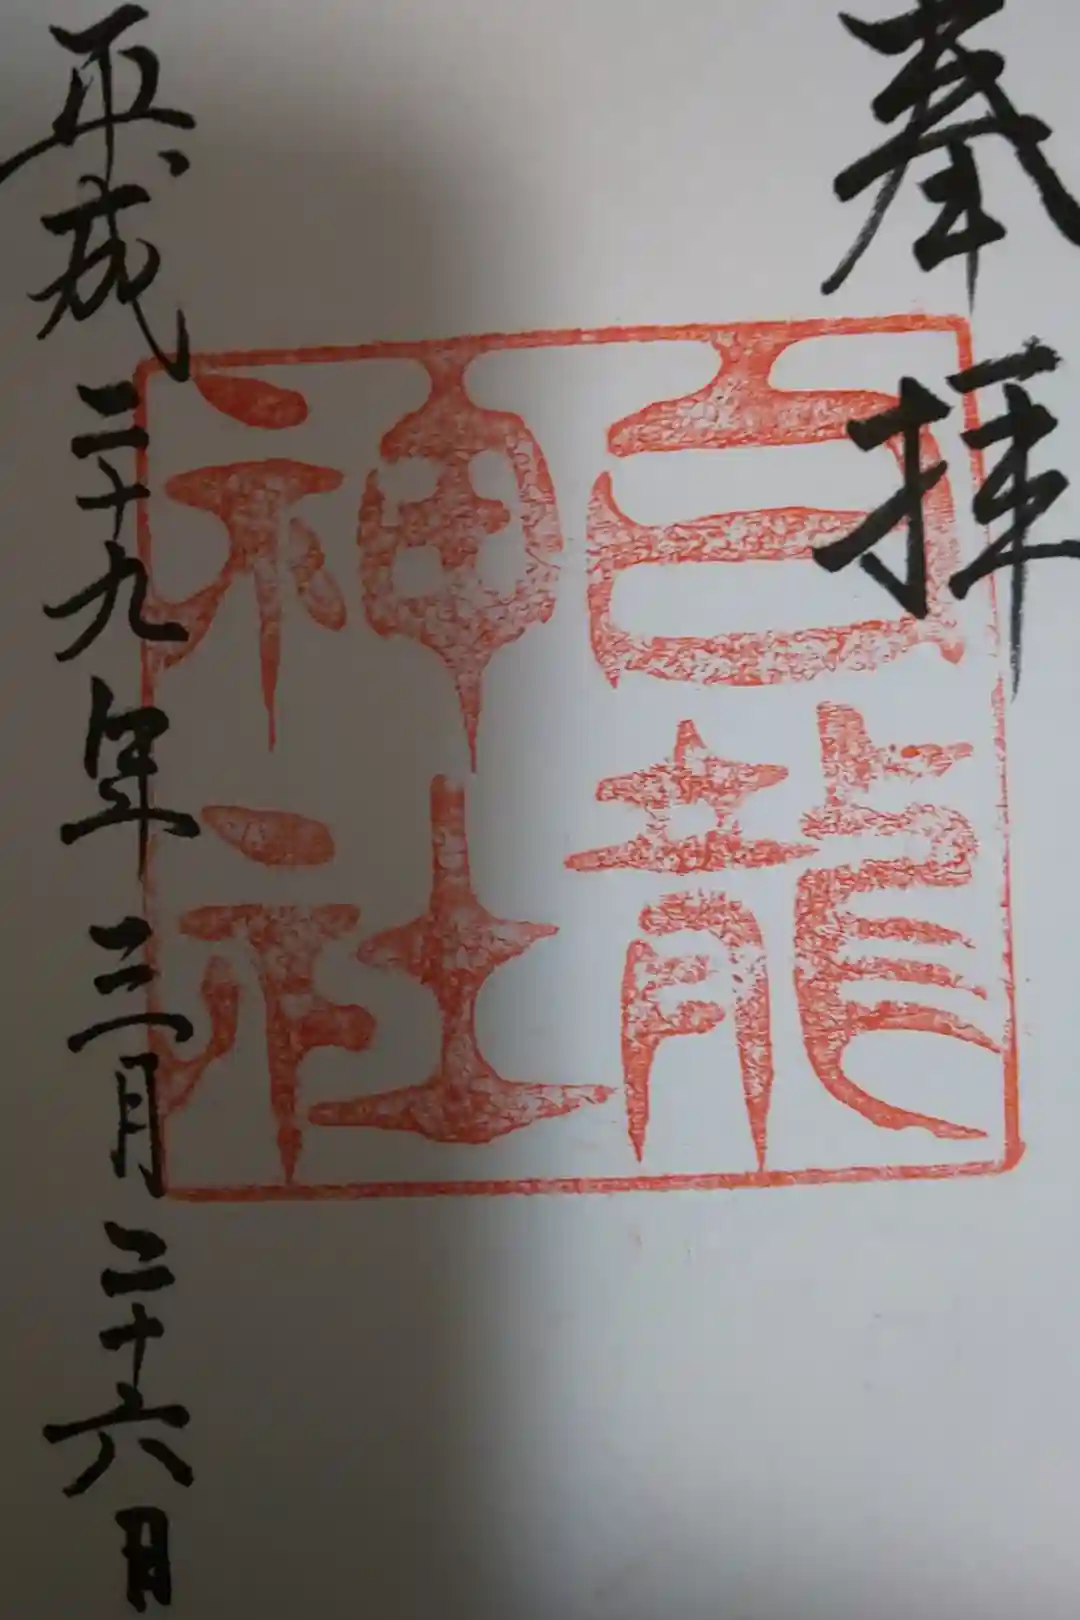 奉拝
白龍
神社
平成二十九年三月二十六日